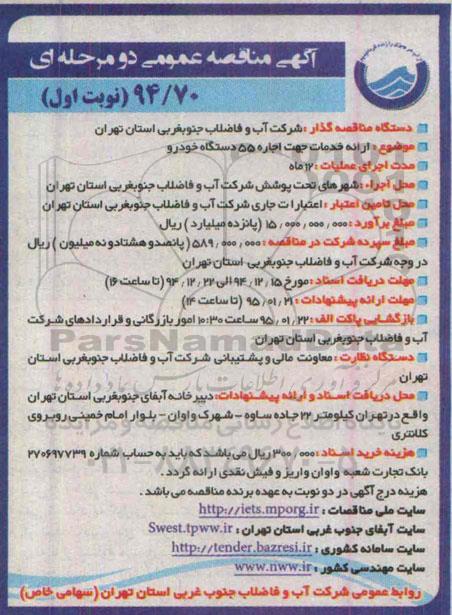 آگهی مناقصه عمومی دو مرحله ای
۹۴/۷۰ (نوبت اول)
دستگاه مناقصه گذار : شرکت آب و فاضلاب جنوبغربی استان تهران
موضوع : ارائه خدمات جهت اجاره ۵۵ دستگاه خودرو
مدت اجرای عملیات : ۱۲ ماه
محل اجراء : شهرهای تحت پوشش شرکت آب و فاضلاب جنوبغربی استان تهران
محل تامین اعتبار : اعتبارات جاری شرکت آب و فاضلاب جنوبغربی استان تهران
مبلغ برآورد : ۱۵٫۰۰۰٫۰۰۰٫۰۰۰ (پانزده میلیارد) ریال
مبلغ سپرده شرکت در مناقصه : ۵۸۹٫۰۰۰٫۰۰۰ (پانصدو هشتادو نه میلیون) ریال
در وجه شرکت آب و فاضلاب جنوبغربی استان تهران
مهلت دریافت اسناد : مورخ ۹۴٫۱۲٫۱۵ الی ۹۴٫۱۲٫۲۲ (تا ساعت ۱۶)
مهلت ارائه پیشنهادات : ۹۵٫۰۱٫۲۱ (تا ساعت ۱۴)
بازگشایی پاکت الف : ۹۵٫۰۱٫۲۲ ساعت ۱۰:۳۰ امور بازرگانی و قراردادهای شرکت
آب و فاضلاب جنوبغربی استان تهران
دستگاه نظارت : معاونت مالی و پشتیبانی شرکت آب و فاضلاب جنوبغربی استان
تهران
محل دریافت اسناد و ارائه پیشنهادات: دبیرخانه آبفای جنوبغربی استان تهران
واقع در تهران کیلومتر ۲۲ جاده ساوه - شهرک واوان - بلوار امام خمینی روبروی
کلانتری
هزینه خرید اسناد : ۳۰۰٫۰۰۰ ریال می باشد که باید به حساب شماره ۲۷۰۶۹۷۷۳۹
بانک تجارت شعبه واوان واریز و فیش نقدی ارائه گردد.
هزینه درج آگهی در دو نوبت به عهده برنده مناقصه می باشد .
سایت ملی مناقصات : http://iets.mporg.ir
سایت آبفای جنوب غربی استان تهران : Swest.tpww.ir
سایت سامانه کشوری : http://tender.bazresi.ir
سایت مهندسی کشور : www.nww.ir
روابط عمومی شرکت آب و فاضلاب جنوب غربی استان تهران (سهامی خاص)
ParsNamadData